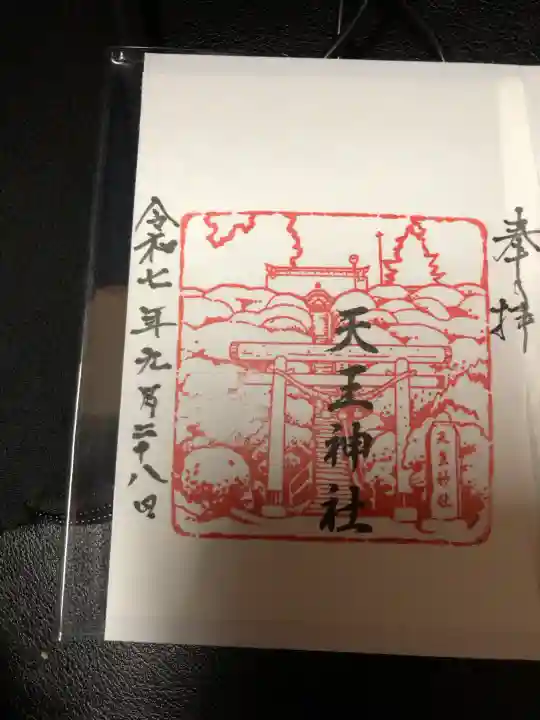 奉拝
天王神社
天王神社
令和七年九月二十八日